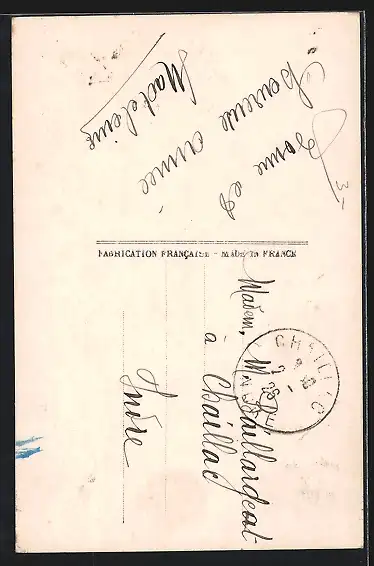 Bonne et
Heureuse année
Madeleine
3-
FABRICATION FRANÇAISE - MADE IN FRANCE
Madem, M. Baillargeat
à Chaillac
Indre
CHAILLAC